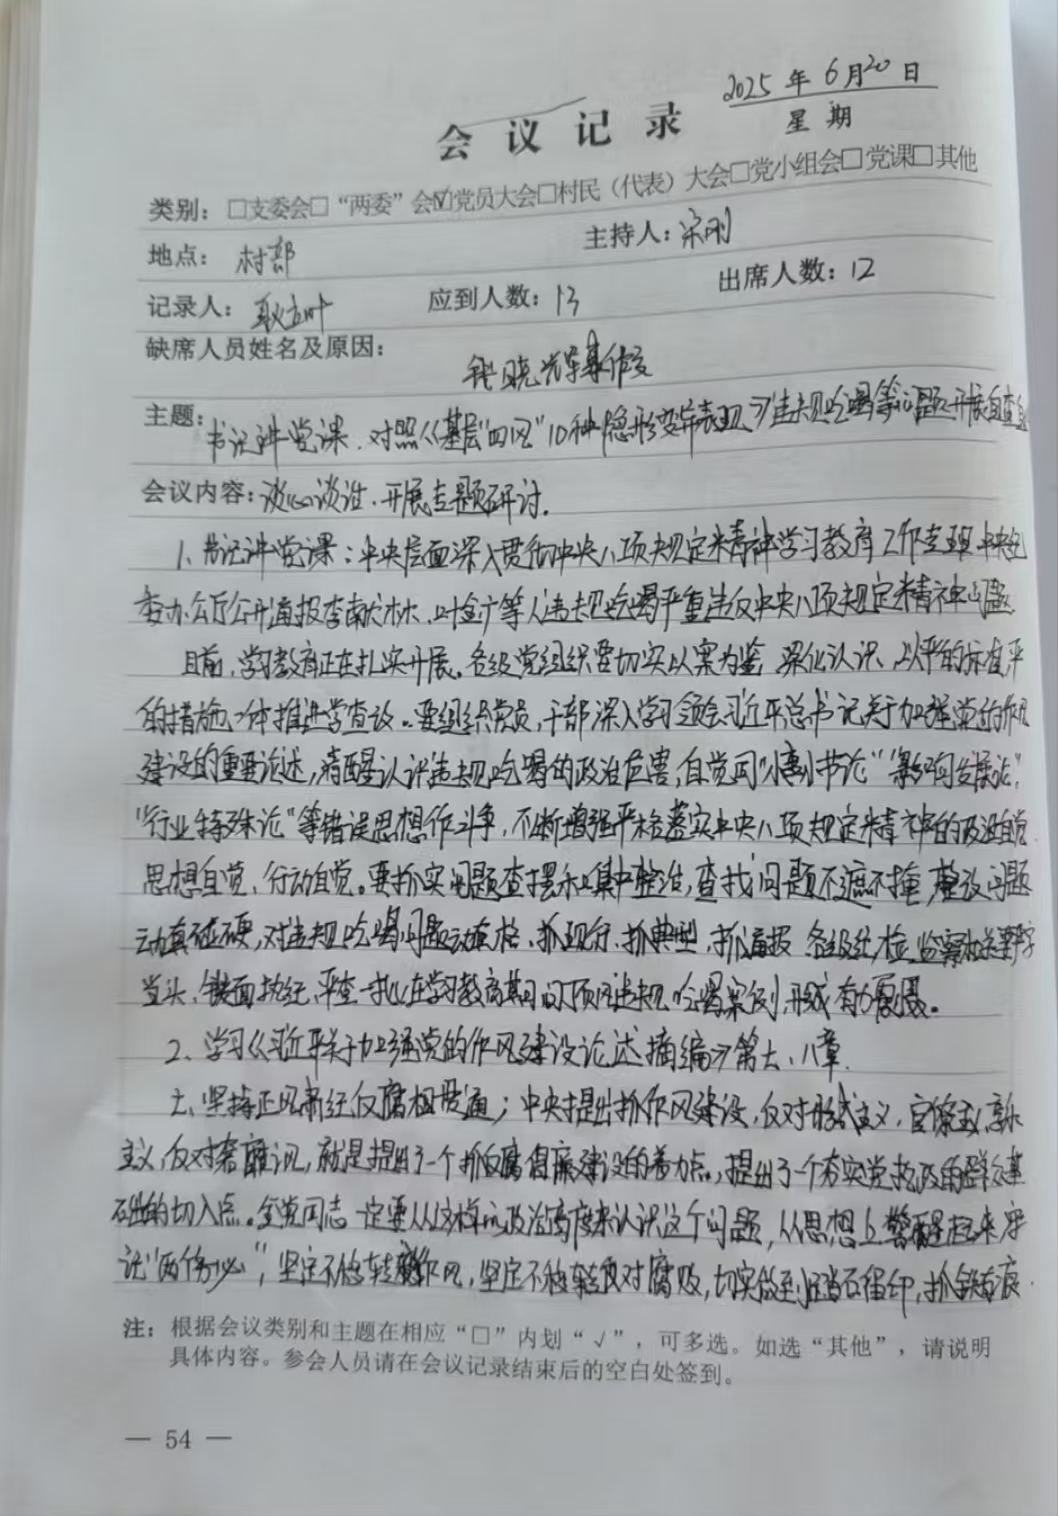 2025年6月20日
会议记录
星期
类别：□支委会□“两委”会☑党员大会□村民（代表）大会□党小组会□党课□其他
地点：村部 主持人：宋刚
记录人：耿立叶 应到人数：13 出席人数：12
缺席人员姓名及原因：
张晓光
主题：书记讲党课.对照《基层“四风”10种隐形变异表现》违规吃喝等问题开展自查自
会议内容：谈心谈话.开展专题研讨.
1、书记讲党课：中央层面深入贯彻中央八项规定精神学习教育工作专班、中央纪
委办公厅公开通报李献林、叶金广等人违规吃喝严重违反中央八项规定精神问题
目前,学习教育正在扎实开展。各级党组织要切实以案为鉴,深化认识,以严的标准、严
的措施一体推进学查改。要组织党员,干部深入学习领会习近平总书记关于加强党的作风
建设的重要论述,清醒认识违规吃喝的政治危害,自觉同“小事小节论”“影响发展论”,
“行业特殊论”等错误思想作斗争,不断增强严格落实中央八项规定精神的政治自觉.
思想自觉、行动自觉。要抓实问题查摆和集中整治,查找问题不遮不掩,整改问题
动真碰硬,对违规吃喝问题动真格、抓现行、抓典型、抓通报 各级纪检、监察机关要严字
当头、铁面执纪,严查一批在学习教育期间顶风违规吃喝案例,形成有力震慑。
2、学习《习近平关于加强党的作风建设论述摘编》第七、八章.
七、坚持正风肃纪反腐相贯通；中央提出抓作风建设,反对形式主义,官僚主义,享乐
主义,反对奢靡之风,就是提出了一个抓反腐倡廉建设的着力点,提出了一个夯实党执政的群众基
础的切入点。全党同志一定要从这样的政治高度来认识这个问题,从思想上警醒起来,牢
记“两个务必”,坚定不移转变作风,坚定不移反对腐败,切实做到踏石留印,抓铁有痕.
注：根据会议类别和主题在相应“□”内划“√”，可多选。如选“其他”，请说明
具体内容。参会人员请在会议记录结束后的空白处签到。
— 54 —